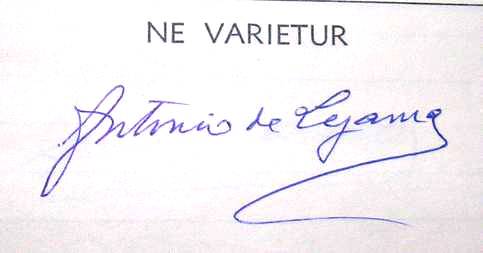 NE VARIETUR
Antonio de Lezama